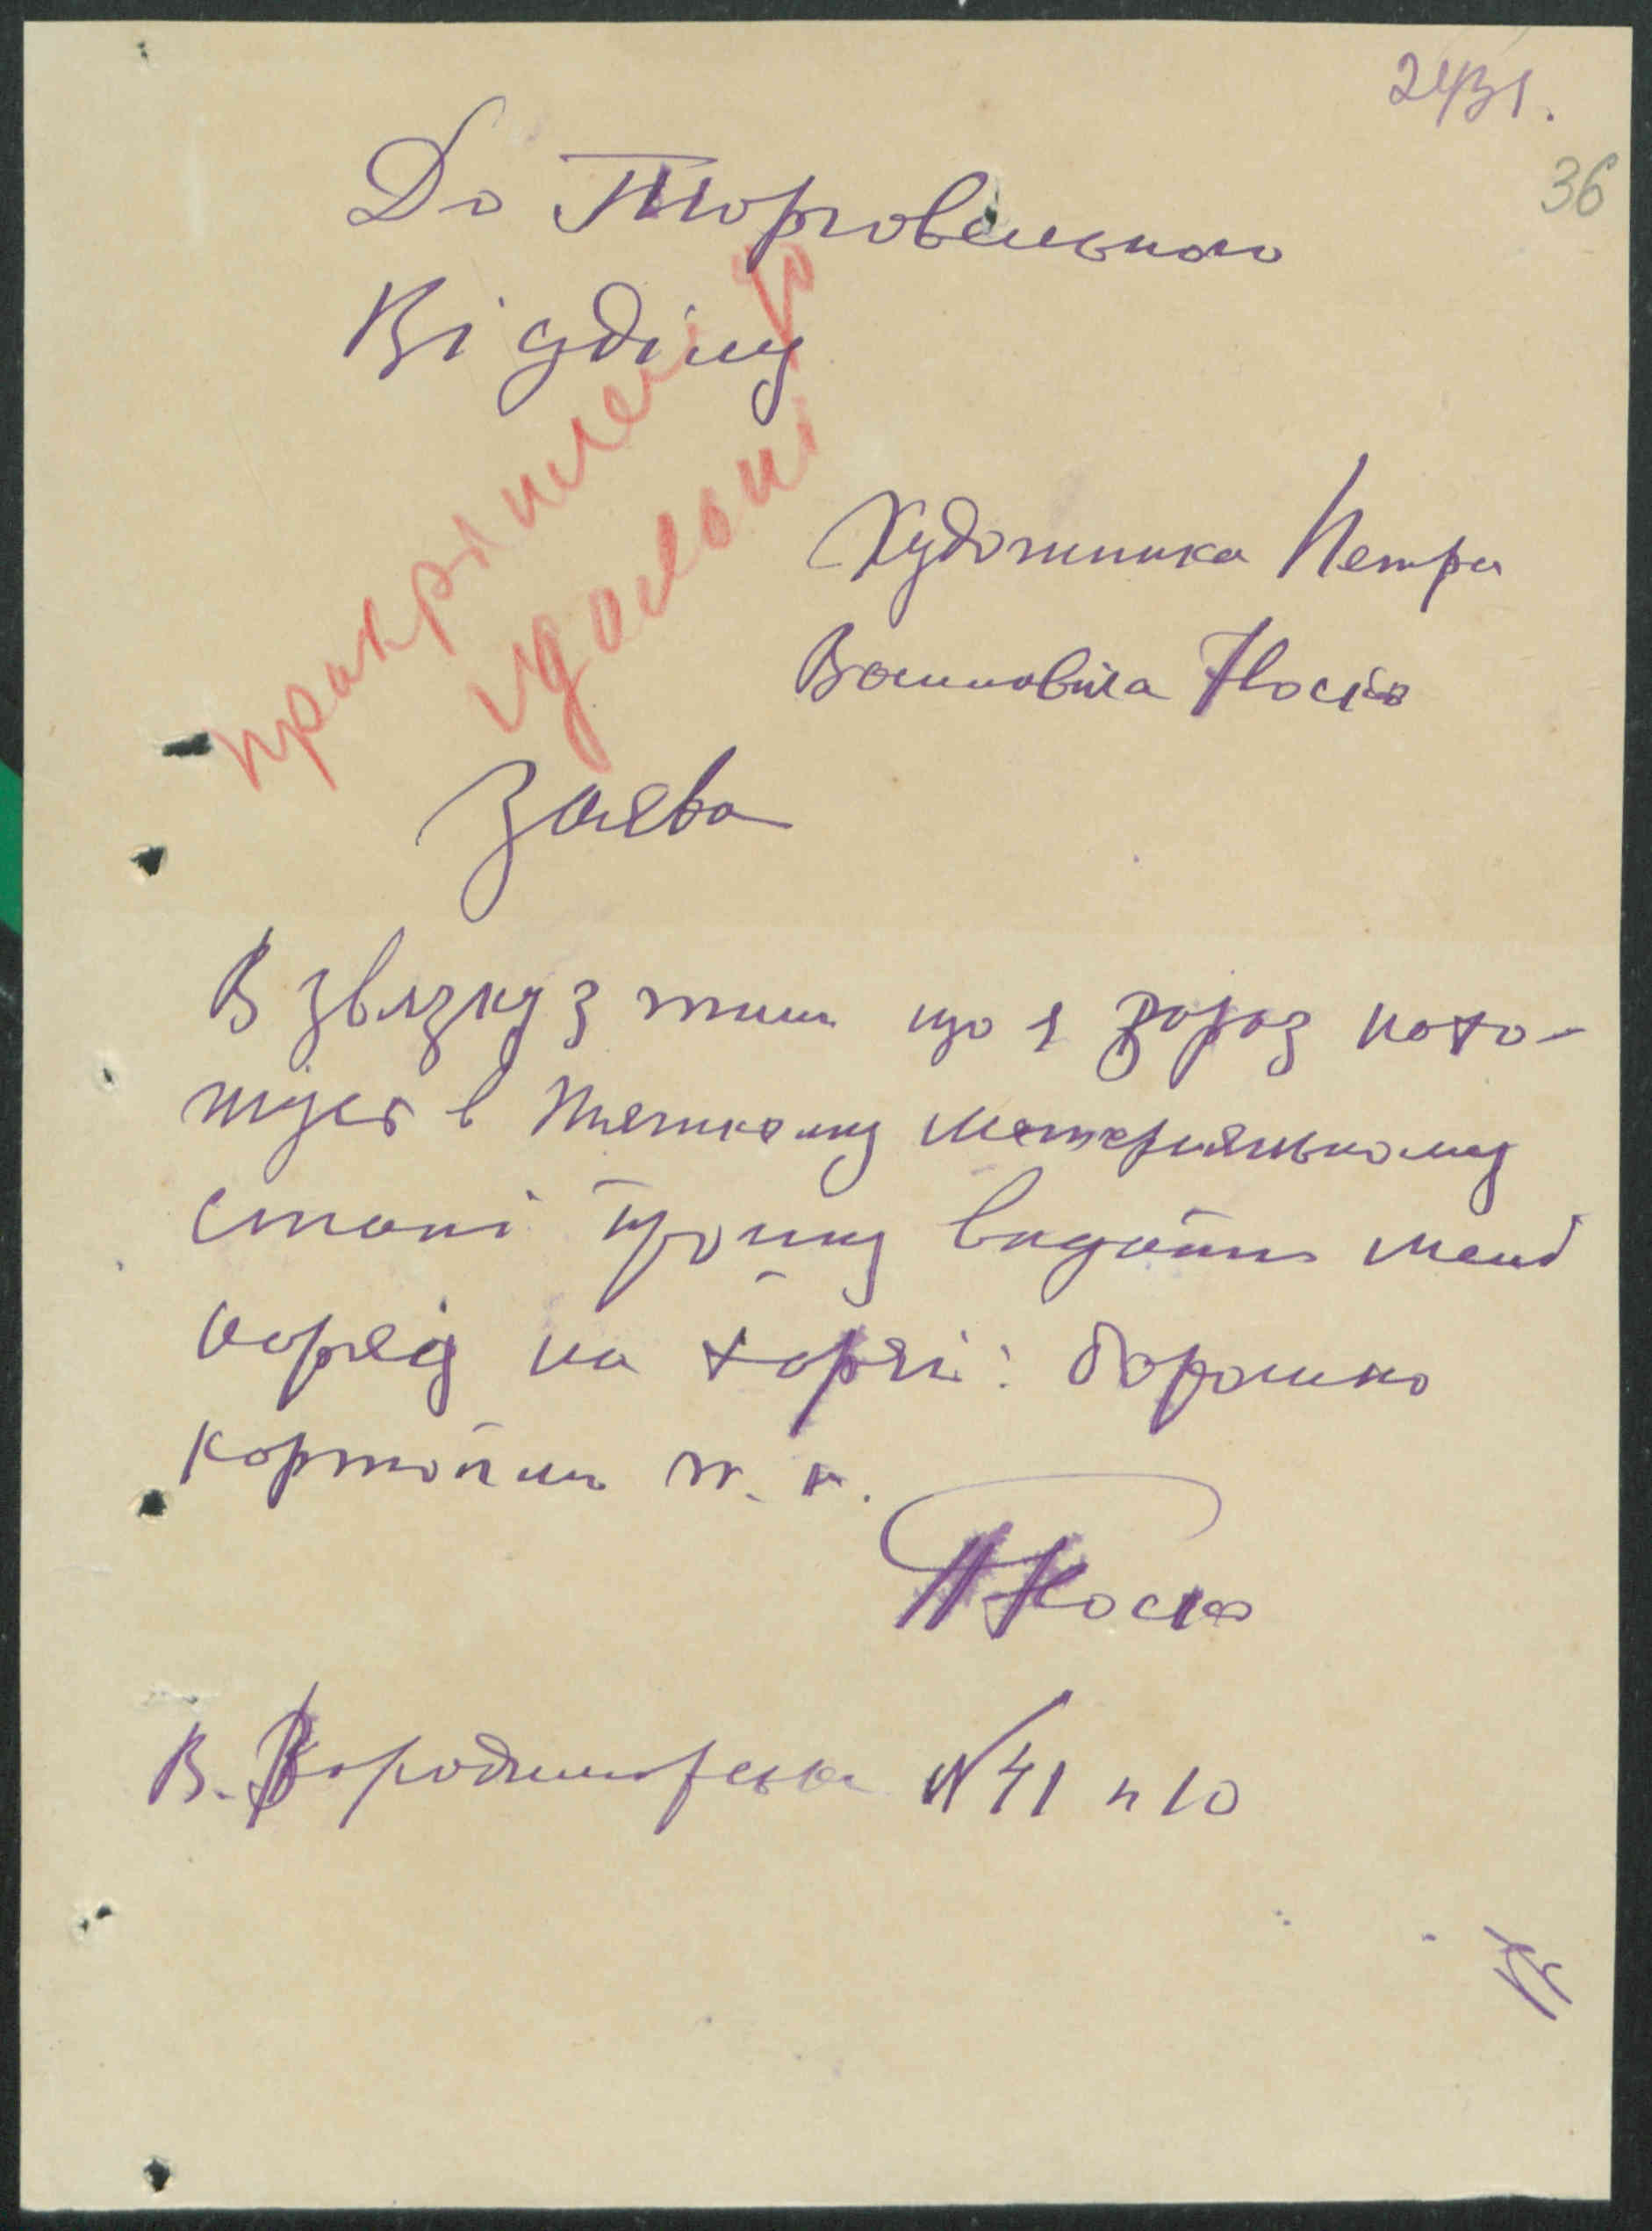 2431.
36
До Торговельного
Відділу
Художника Петра
Васильовіча Носко
Заява
В звязку з тим що я зараз нахо-
жусь в тяжкому матеріяльному
стані прошу видати мені
наряд на харчі: борошно
картопля т. п.
П Носко
В. Житомирська №41 п 10